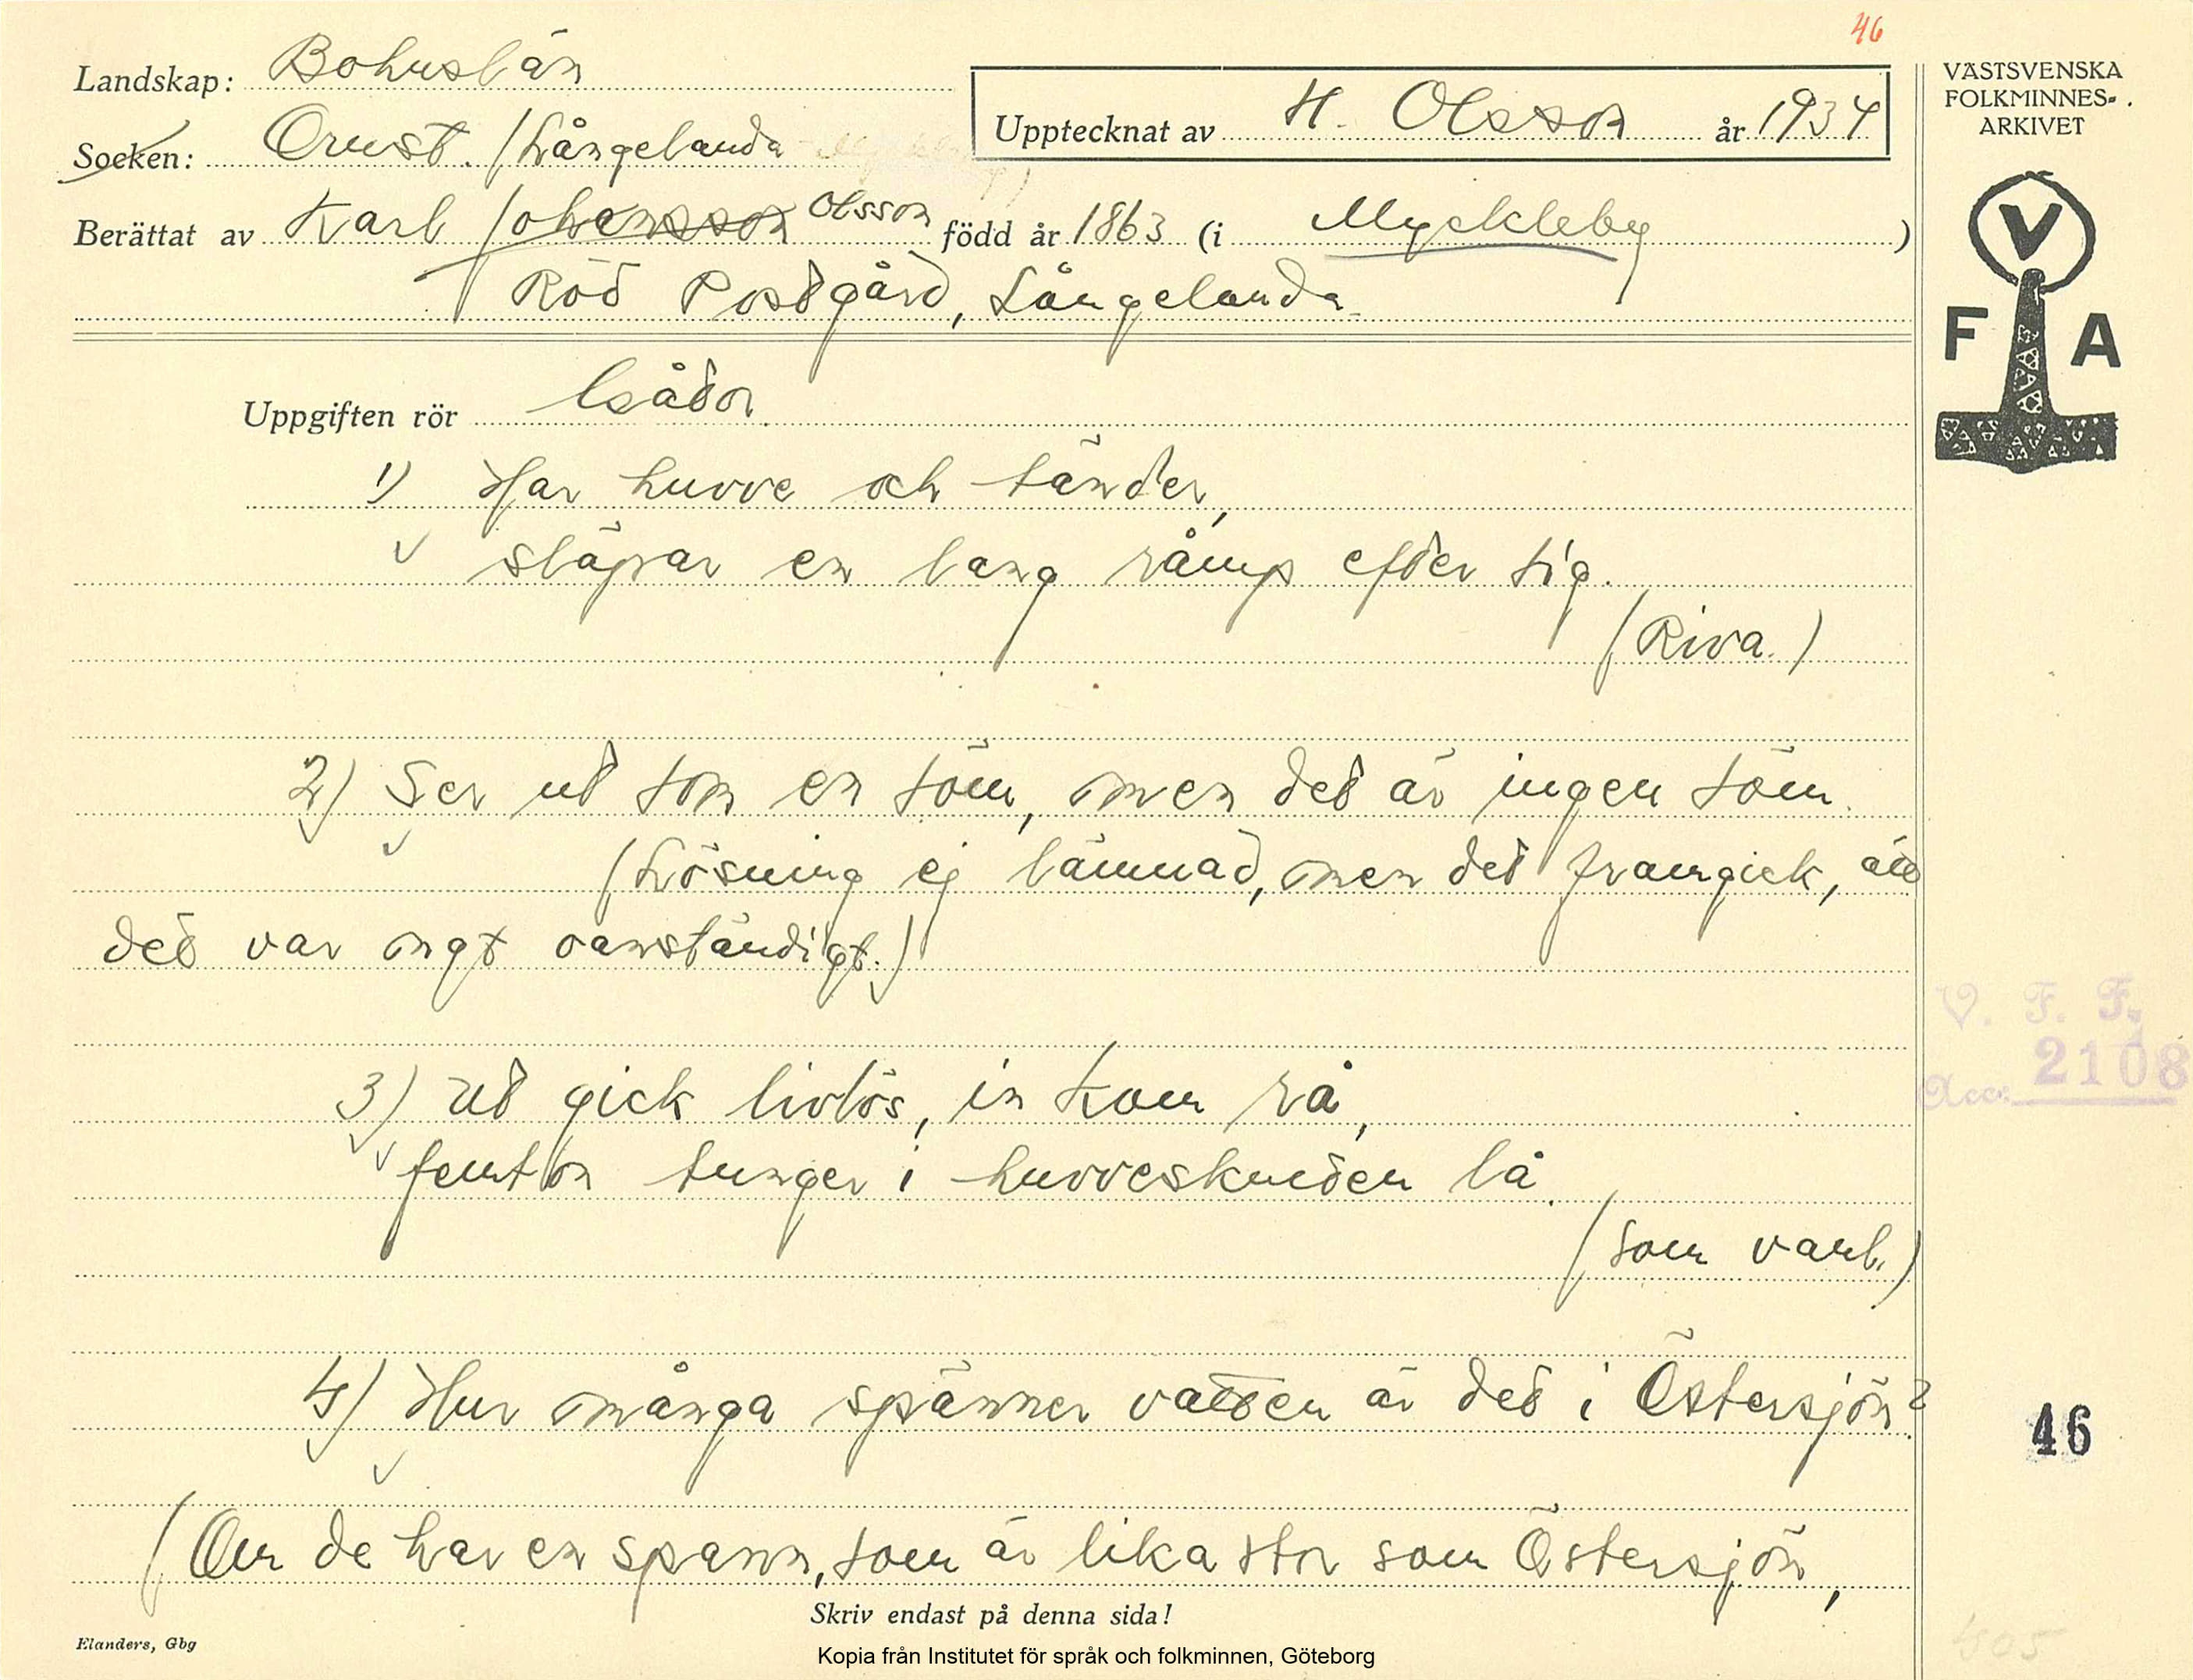 46
Landskap: Bohuslän
VÄSTSVENSKA
FOLKMINNES-
ARKIVET
Upptecknat av H. Olsson år 1934
Socken: Orust. (Långelanda
Berättat av Karl Johansson Olsson född år 1863 (i Myckleby)
Röd Postgård, Långelanda
V
F A
Uppgiften rör Gåtor
1) Har huvve och tänder,
släpar en lang råmp efter sig.
(Riva.)
2) Ser ut som en söm, men det är ingen söm.
(Lösning ej lämnad, men det framgick, att
det var ngt oanständigt.)
V. F. F.
Acc. 2108
3) Ut gick livlös, in kom rå,
femton tunger i huvveskneden lå.
(som vanl.)
4) Hur många spänner vatten är det i Östersjön?
46
(Om de har en spann, som är lika stor som Östersjön,
Skriv endast på denna sida!
Elanders, Gbg
Kopia från Institutet för språk och folkminnen, Göteborg
405